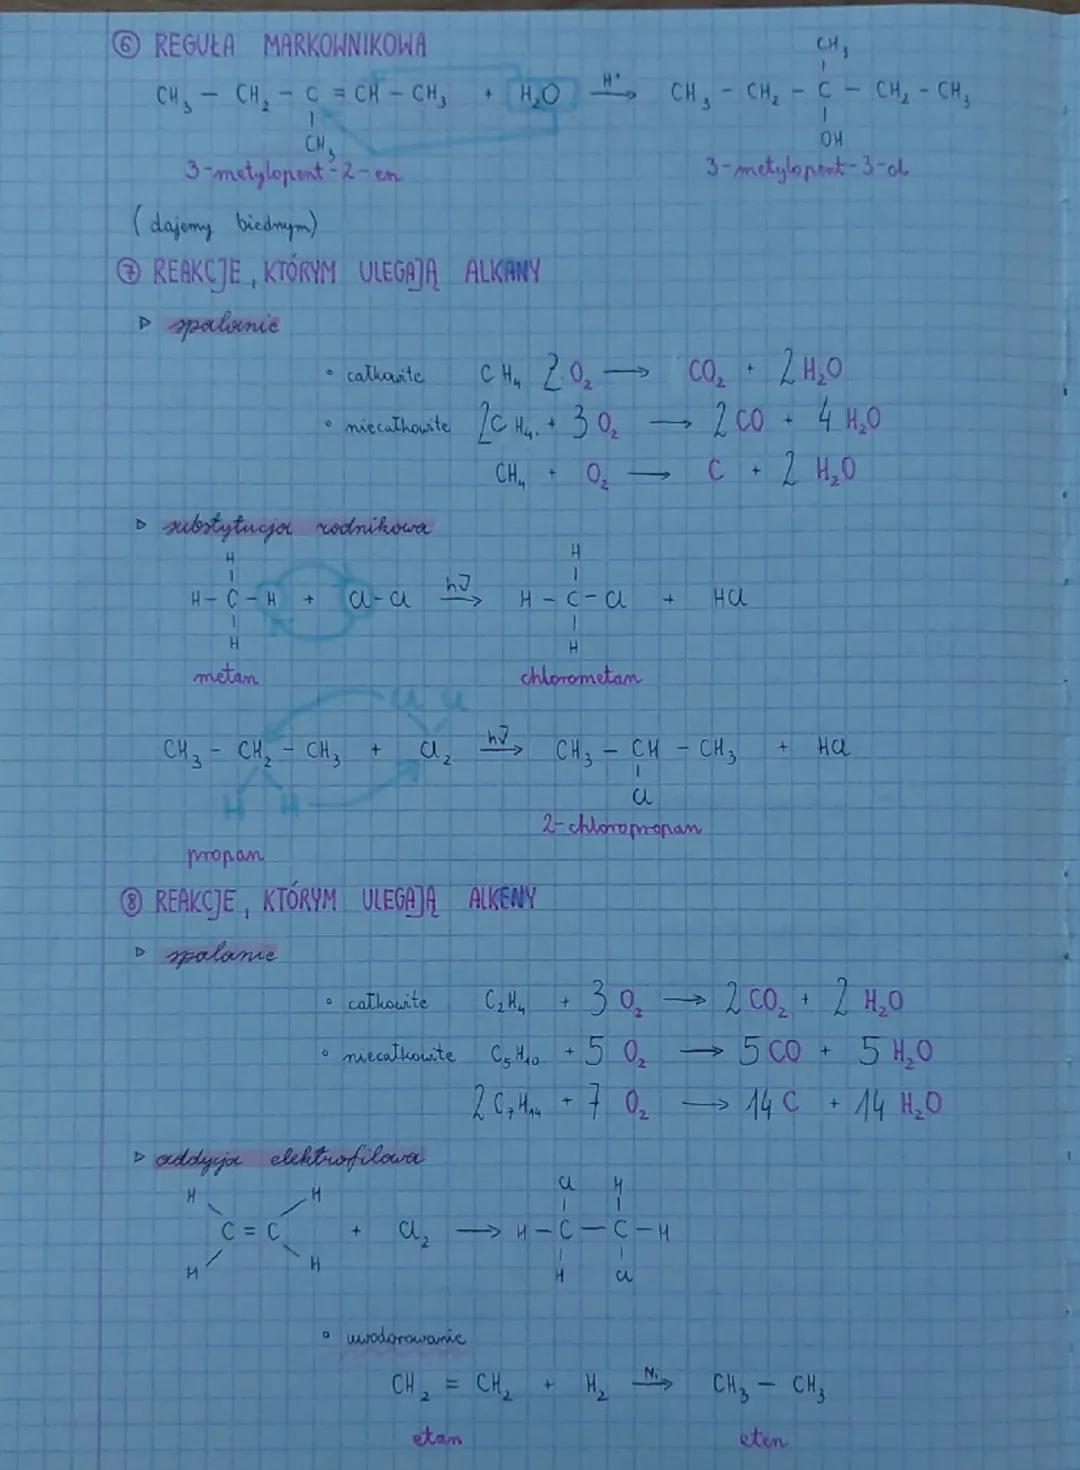 ⑥ REGUŁA MARKOWNIKOWA
CH₃
CH₃ – CH₂ – C = CH – CH₃ + H₂O H⁺→ CH₃ – CH₂ – C – CH₂ – CH₃
CH₃ OH
3-metylopent-2-en 3-metylopent-3-ol
(dajemy biednym)
⑦ REAKCJE, KTÓRYM ULEGAJĄ ALKANY
▷ spalanie
◦ całkowite CH₄ 2O₂ → CO₂ + 2H₂O
◦ niecałkowite 2CH₄ + 3O₂ → 2CO + 4H₂O
CH₄ + O₂ → C + 2H₂O
▷ substytucja rodnikowa
H H
H – C – H + Cl – Cl hν→ H – C – Cl + HCl
H H
metan chlorometan
Cl Cl
CH₃ – CH₂ – CH₃ + Cl₂ hν→ CH₃ – CH – CH₃ + HCl
H H Cl
2-chloropropan
propan
⑧ REAKCJE, KTÓRYM ULEGAJĄ ALKENY
▷ spalanie
◦ całkowite C₂H₄ + 3O₂ → 2CO₂ + 2H₂O
◦ niecałkowite C₅H₁₀ + 5O₂ → 5CO + 5H₂O
2C₇H₁₄ + 7O₂ → 14C + 14H₂O
▷ addycja elektrofilowa
H H Cl H
C = C + Cl₂ → H – C – C – H
H H H Cl
◦ uwodorowanie
CH₂ = CH₂ + H₂ Ni→ CH₃ – CH₃
etan eten